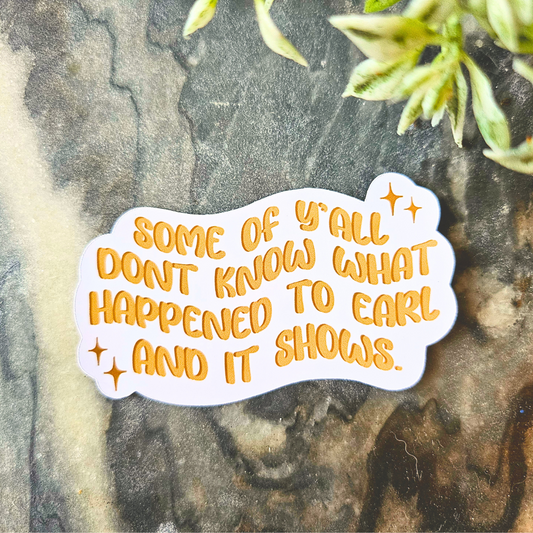 SOME OF Y'ALL
DONT KNOW WHAT
HAPPENED TO EARL
AND IT SHOWS.